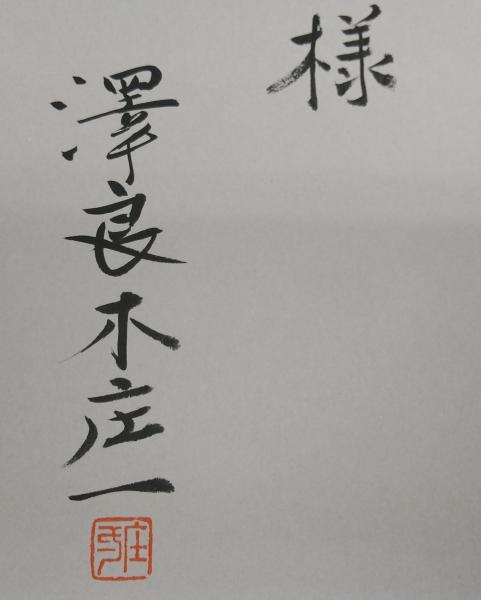 様
澤良木庄一